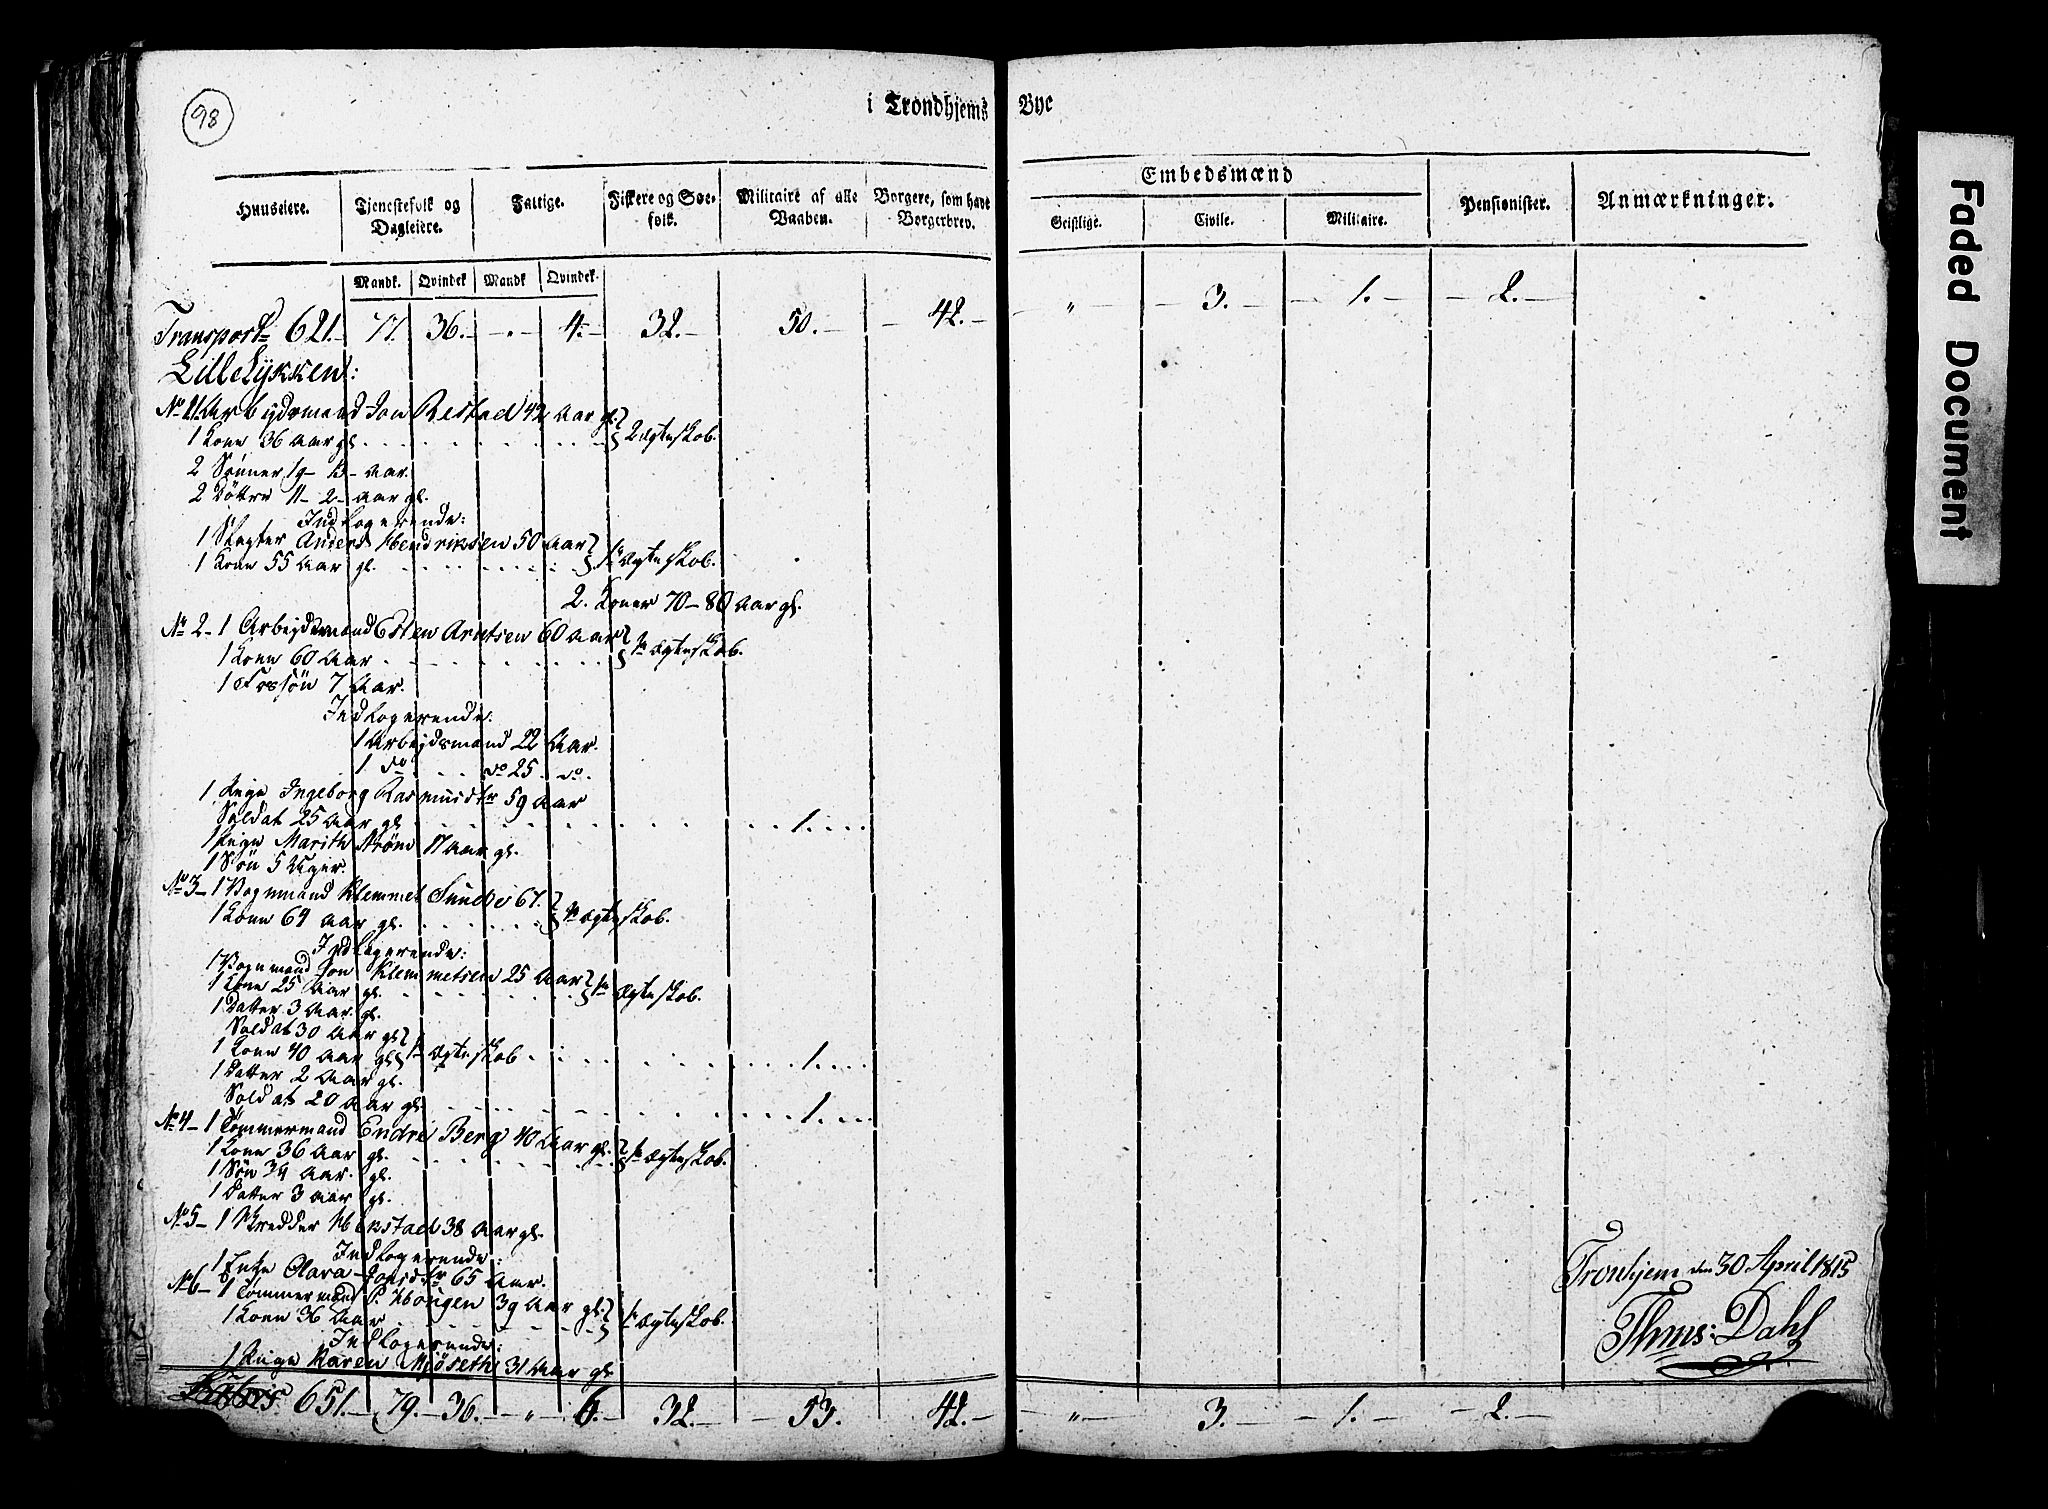 98
i Trondhjems Bye
Huuseiere. Tjenestefolk og Dagleiere. Fattige. Fiskere og Søefolk. Militaire af alle Vaaben. Borgere, som have Borgerbrev. Embedsmænd Pensionister. Anmærkninger.
Geistlige. Civile. Militaire.
Mandk. Qvindek Mandk Qvindek.
Transport 621. 77. 36. " 4. 32. 50. 42. " 3. 1. 2.
Lilleløkken:
No 1. 1 Arbejdsmand Jon Restad 42 Aar gl. } 2 Ægteskab.
1 Kone 36 Aar gl.
2 Sønner 19 - 13 - Aar.
2 Døttre 11 - 2 - Aar gl.
Indlogerende:
1 Slagter Anders Hendriksen 50 Aar } 1te Ægteskab.
1 Kone 55 Aar gl.
2. Koner 70 - 80 Aar gl.
No 2 - 1 Arbejdsmand Esten Arntsen 60 Aar } 1te Ægteskab.
1 Kone 60 Aar
1 Fossøn 7 Aar.
Indlogerende:
1 Arbejdsmand 22 Aar.
1 do do 25 do.
1 Pige Ingeborg Rasmusdtr 59 Aar
Soldat 25 Aar gl 1.
1 Pige Marith Strøm 17 Aar gl.
1 Søn 5 Uger.
No 3 - 1 Vognmand Klemmet Sunde 67. } 1te Ægteskab.
1 Kone 64 Aar gl.
Indlogerende:
1 Vognmand Jon Klemmetsen 25 Aar } 1te Ægteskab.
1 Kone 25 Aar gl.
1 Datter 3 Aar gl.
Soldat 30 Aar gl }
1 Kone 40 Aar gl } 1te Ægteskab 1.
1 Datter 2 Aar gl.
Soldat 20 Aar gl. 1.
No 4 - 1 Tømmermand Endre Berg 40 Aar gl. } 1te Ægteskab.
1 Kone 36 Aar gl.
1 Søn Aar. gl.
1 Datter 3 Aar gl.
No 5 - 1 Skredder 38 Aar gl.
Indlogerende:
1 Enke Clara Jonsdtr 65 Aar.
No 6 - 1 Tømmermand P. Hougen 39 Aar gl. } 1te Ægteskab.
1 Kone 36 Aar
Indlogerende:
1 Pige Karen Mjöseth 31 Aar gl
651. 79. 36. " 6. 32. 53. 42. " 3. 1. 2.
Tronhjem den 30 April 1815
Thms: Dahl
Faded Document